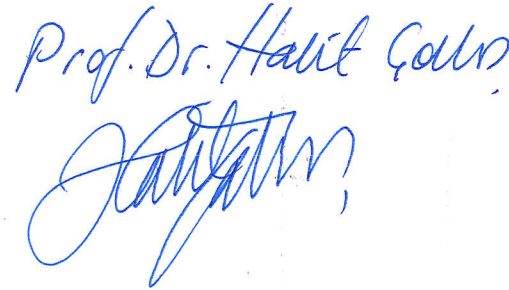 Prof. Dr. Halit Çalış